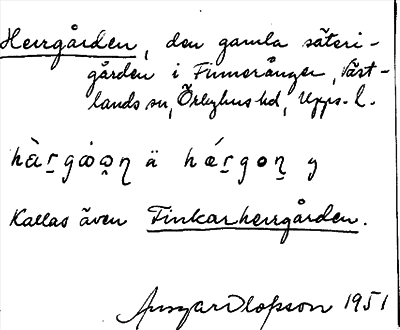 Herrgården, den gamla säteri-
gården i Finneränger, Väst-
lands sn, Örbyhus hd, Upps. l.
ä y
Kallas även Finkarherrgården.
Ansgar Olofsson 1951